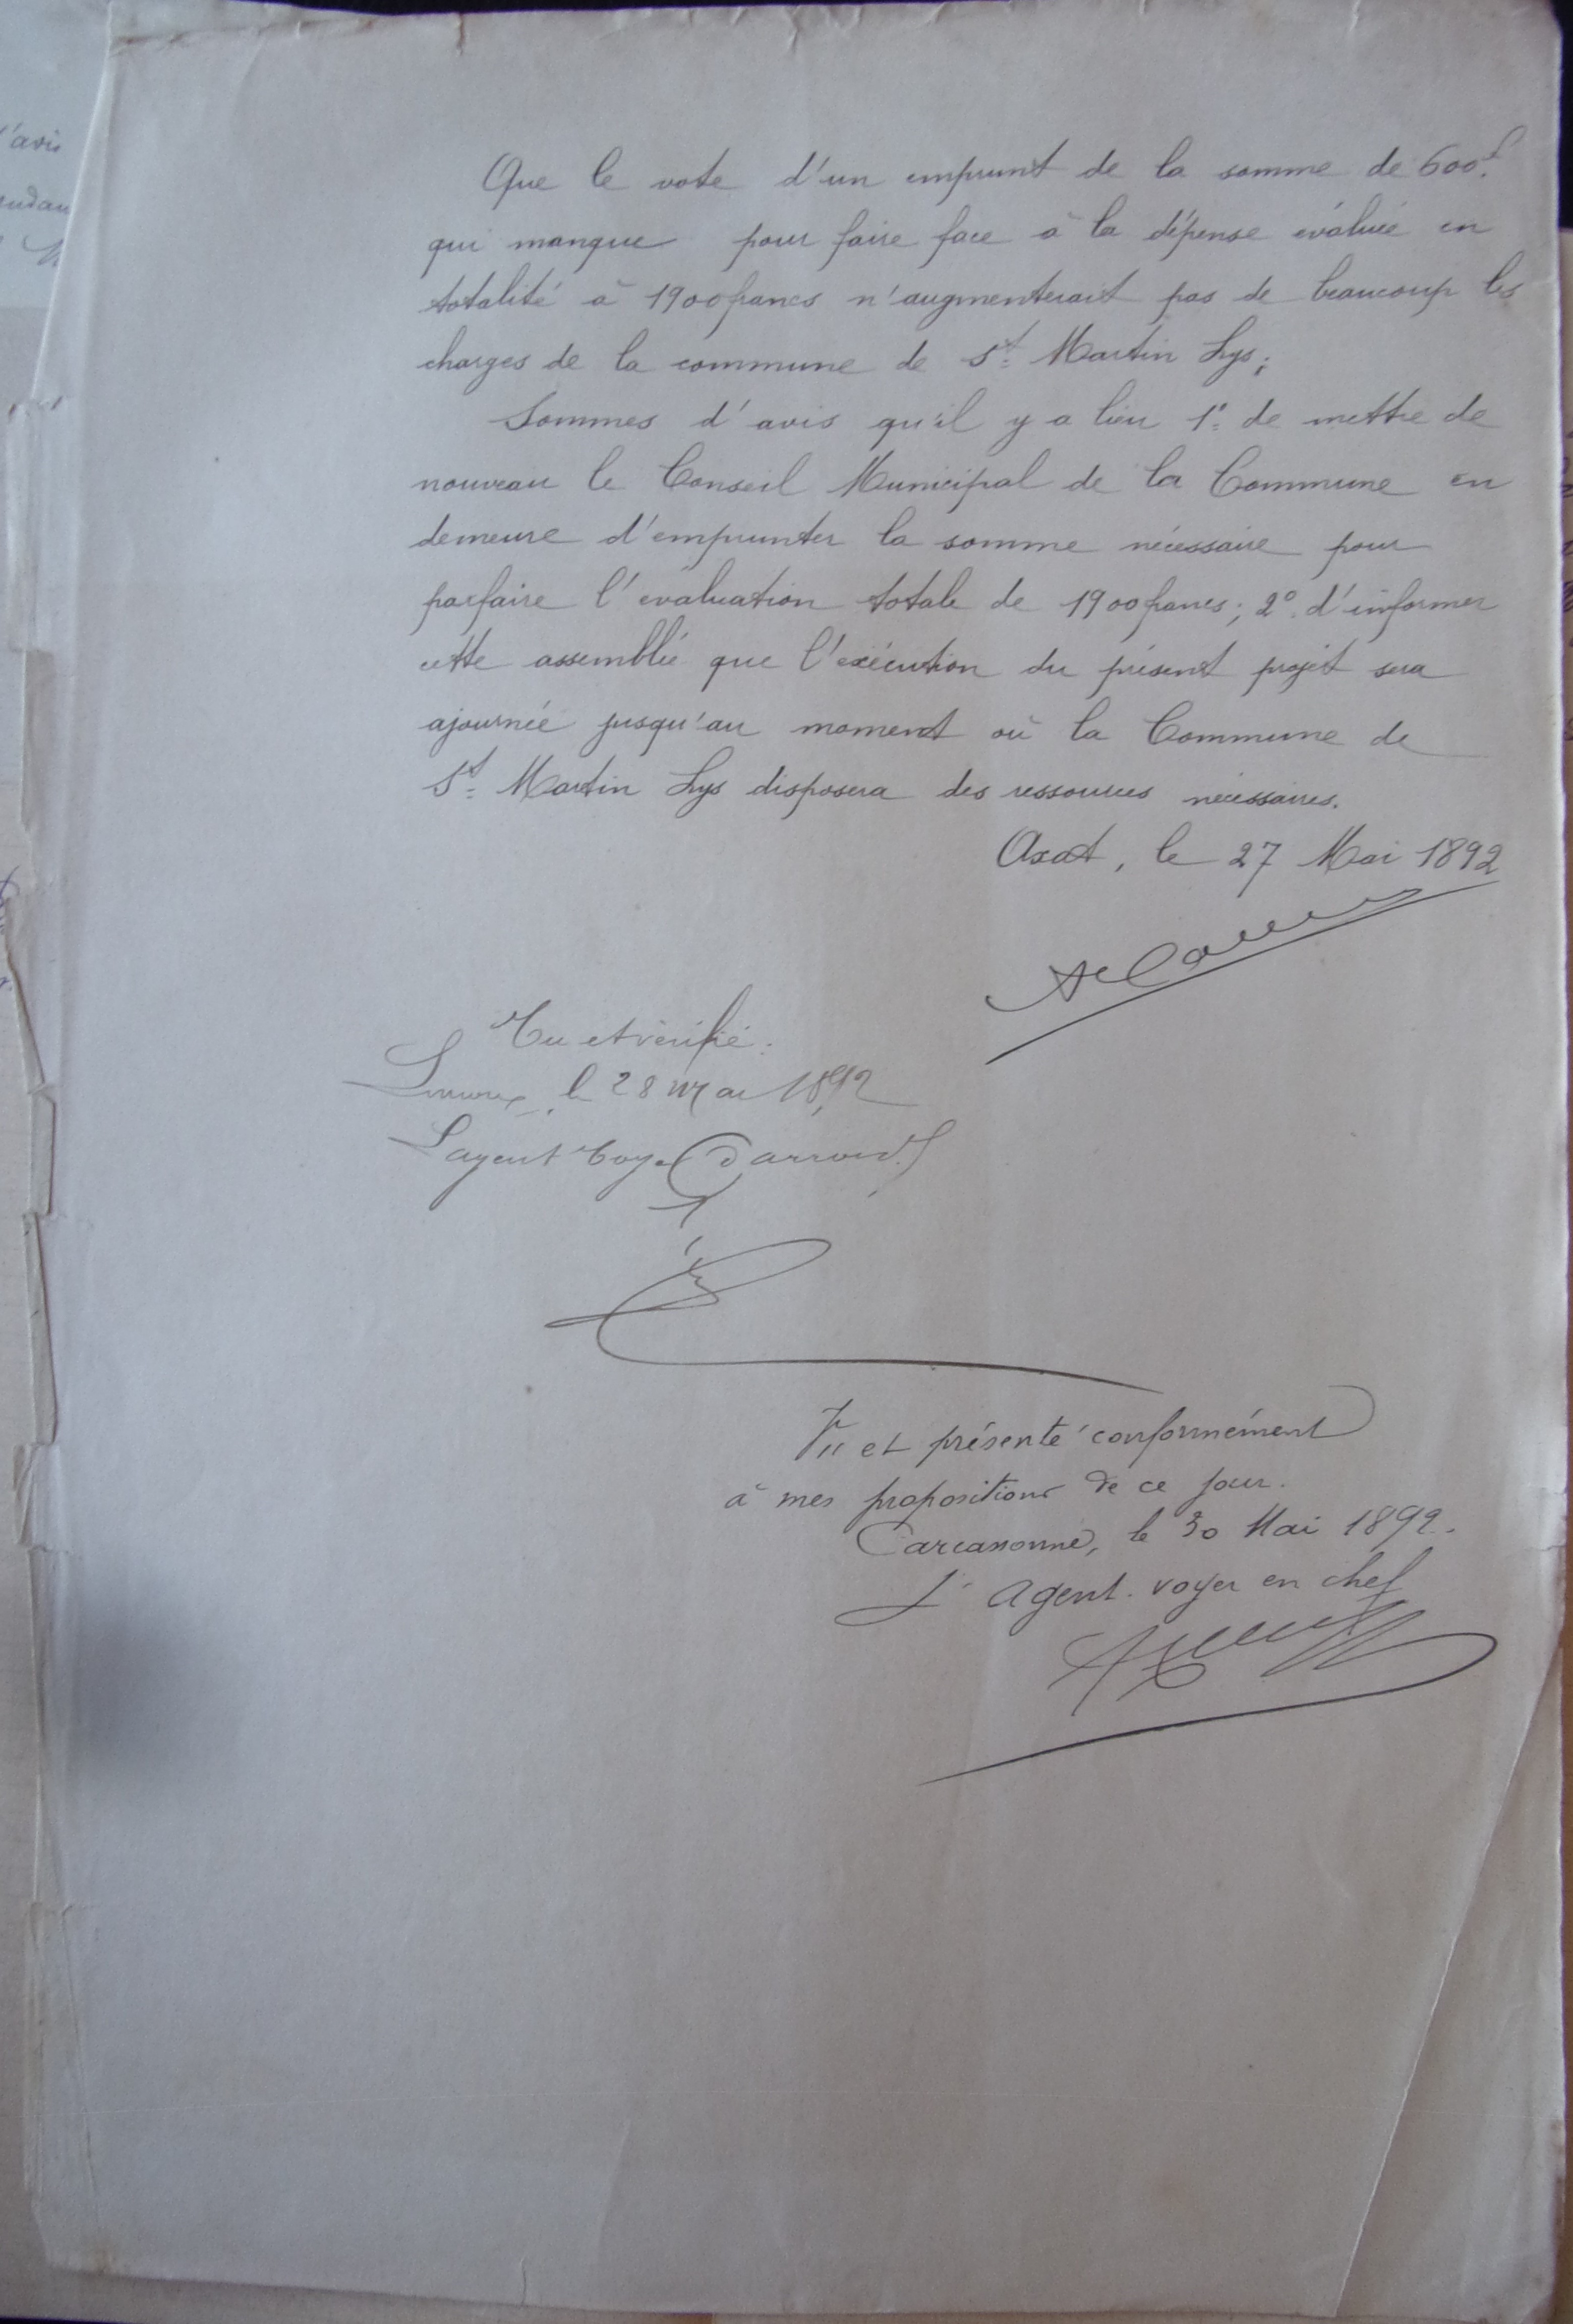 Que le vote d'un emprunt de la somme de 600f.
qui manque pour faire face à la dépense évaluée en
totalité à 1900 francs n'augmenterait pas de beaucoup les
charges de la commune de St. Martin Lys;
Sommes d'avis qu'il y a lieu 1° de mettre de
nouveau le Conseil Municipal de la Commune en
demeure d'emprunter la somme nécessaire pour
parfaire l'évaluation totale de 1900 francs; 2°. d'informer
cette assemblée que l'exécution du présent projet sera
ajournée jusqu'au moment où la Commune de
St. Martin Lys disposera des ressources nécessaires.
Axat, le 27 Mai 1892
Vu et vérifié:
Limoux, le 28 mai 1892
L'agent Voyer d'arrond.t
Vu et présenté conformément
à mes propositions de ce jour.
Carcassonne, le 30 Mai 1892.
L'Agent-voyer en chef
l'avis